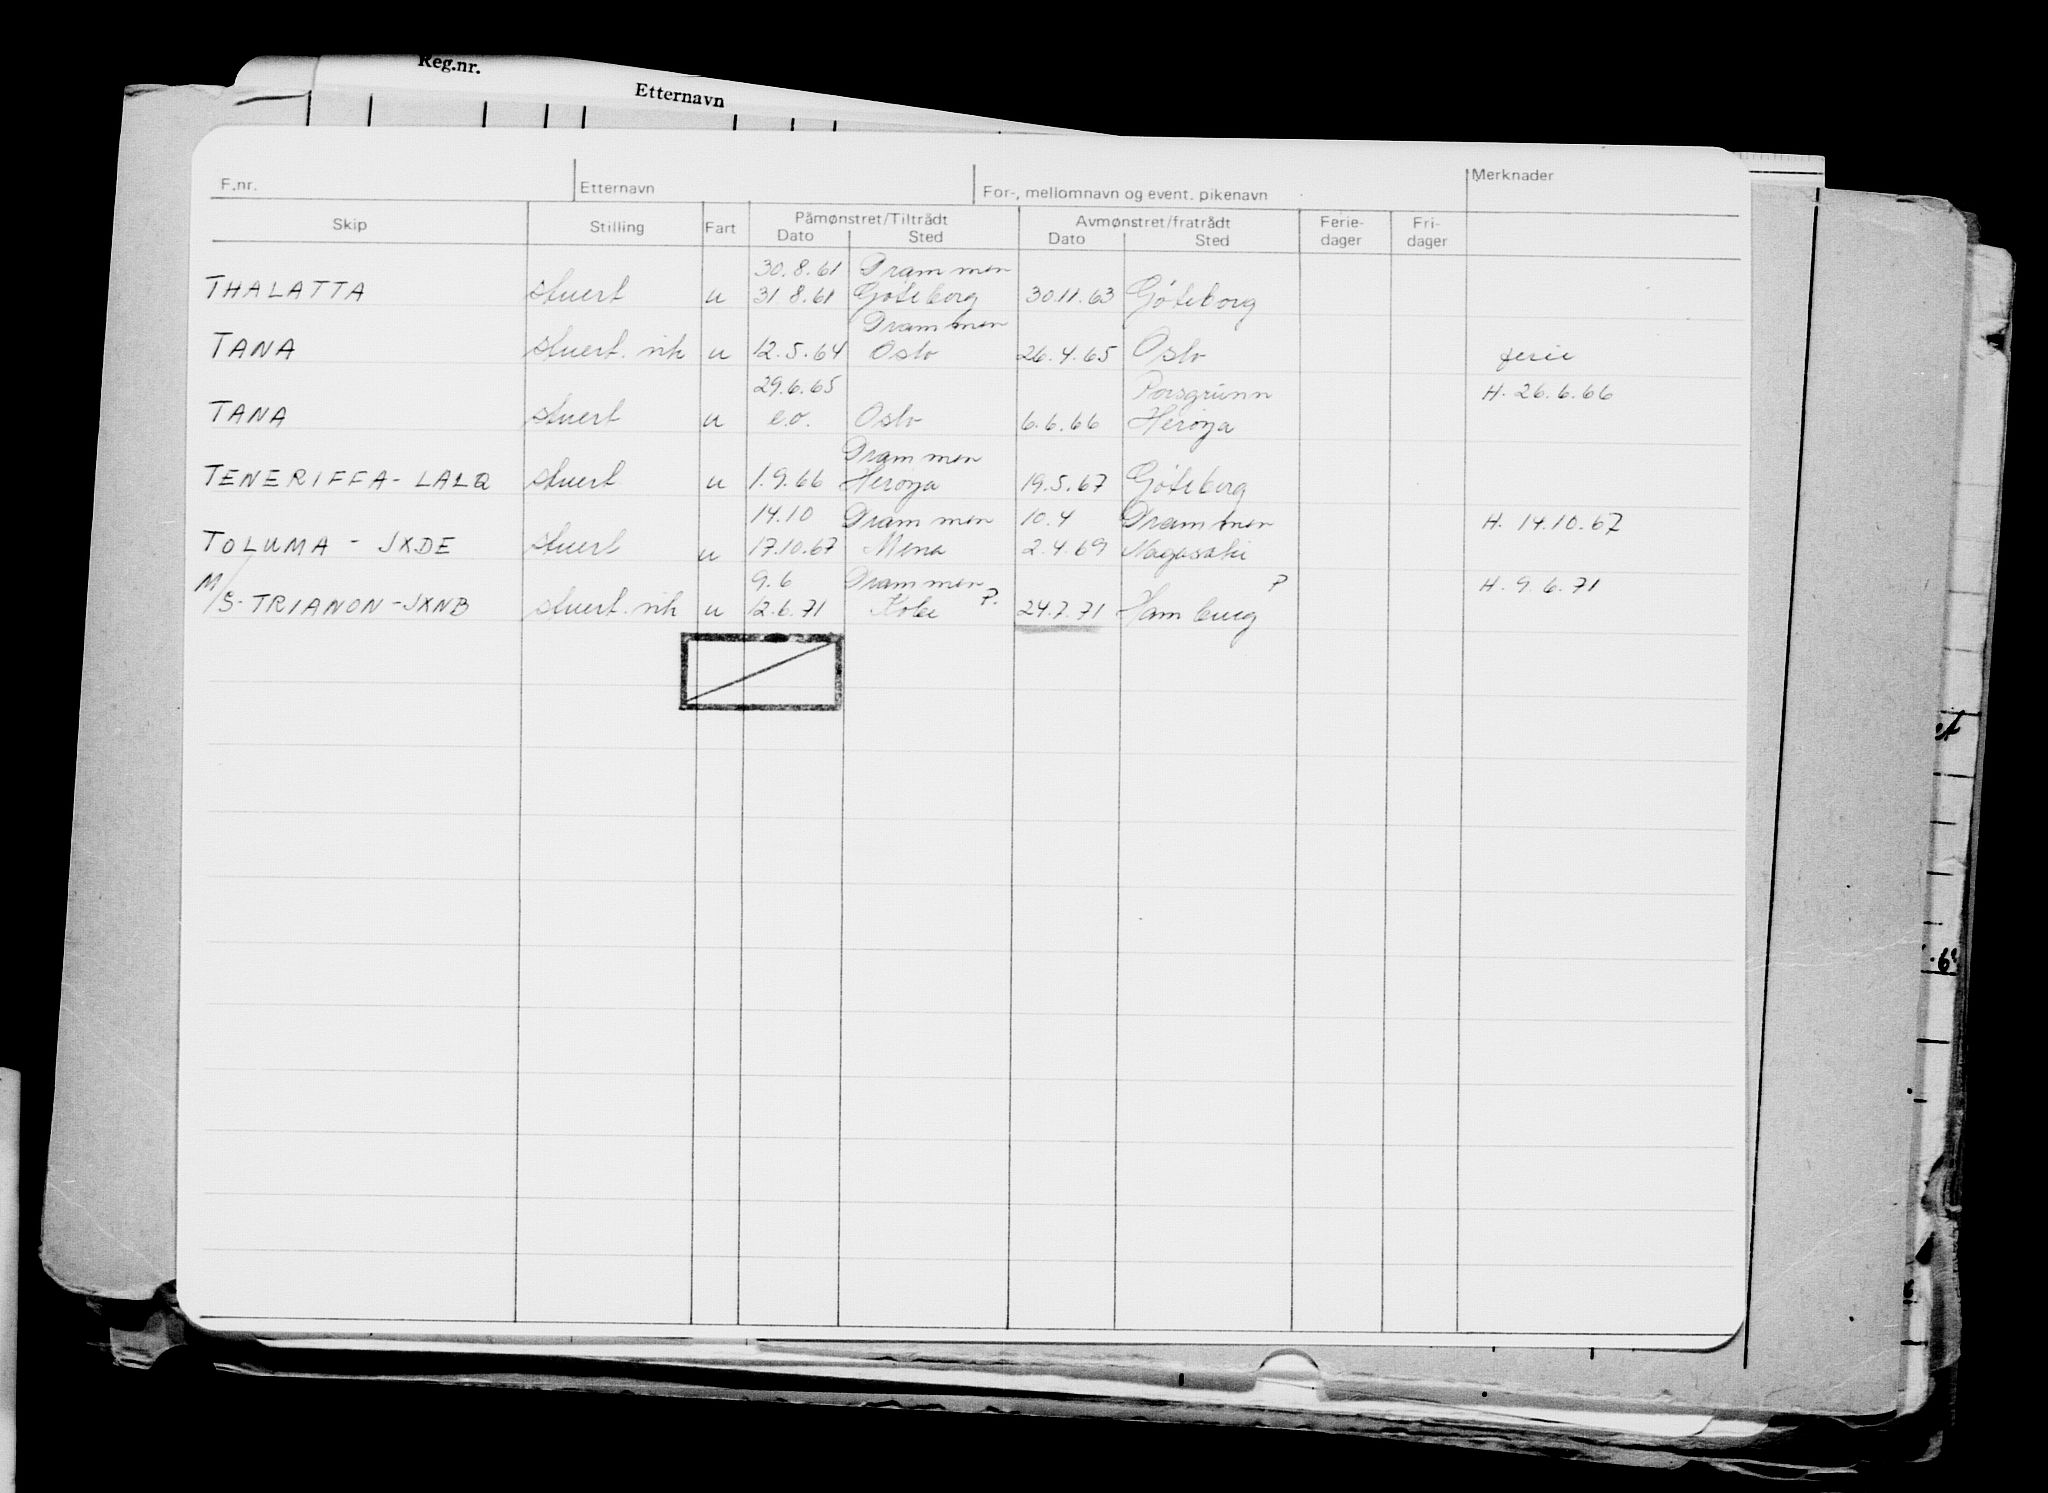 Reg.nr.
Etternavn
F.nr. Etternavn For-, mellomnavn og event. pikenavn Merknader
Skip Stilling Fart Påmønstret/Tiltrådt Avmønstret/fratrådt Ferie-dager Fri-dager
Dato Sted Dato Sted
30.8.61 Drammen
THALATTA stuert u 31 8.61 Göteborg 30.11.63 Göteborg
Drammen
TANA stuert. vik u 12.5.64 Oslo 26.4.65 Oslo ferie
29.6.65 Porsgrunn H. 26.6.66
TANA stuert u e.o. Oslo 6.6.66 Herøya
Drammen
TENERIFFA - LALQ stuert u 1.9.66 Herøya 19.5.67 Göteborg
14.10 Drammen 10.4 Drammen H. 14.10.67
TOLUMA - JXDE stuert u 17.10.67 Mena 2.4.69 Nagasaki
9.6 Drammen ? H. 9.6.71
M/S - TRIANON - JXNB stuert. vik u 12.6.71 Kobe ?. 24.7.71 Hamburg